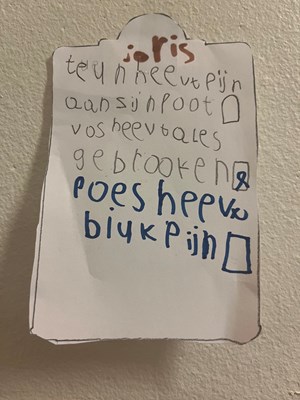 joris
teunheevtpijn
aansijnpoot
vosheevtales
gebrooken
poesheevt
biukpijn